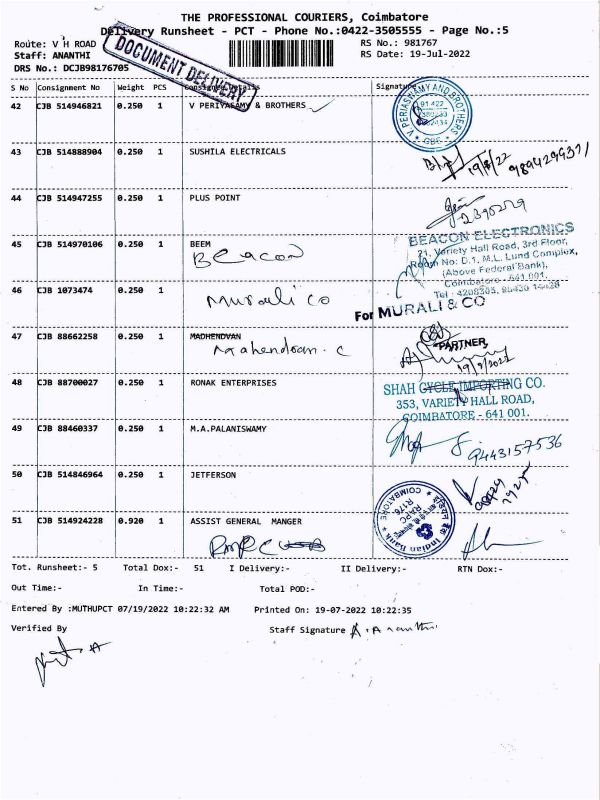 THE PROFESSIONAL COURIERS, Coimbatore
Delivery Runsheet - PCT - Phone No.:0422-3505555 - Page No.:5
Route: V H ROAD
RS No.: 981767
Staff: ANANTHI
RS Date: 19-Jul-2022
DRS No.: DCJB98176705
DOCUMENT DELIVERY
S No Consignment No Weight PCS Consignee Details Signature
42 CJB 514946821 0.250 1 V PERIYASAMY & BROTHERS
V. PERIASWAMY AND BROTHERS
CBE
43 CJB 514888904 0.250 1 SUSHILA ELECTRICALS
19/7/22
44 CJB 514947255 0.250 1 PLUS POINT
2390279
45 CJB 514970106 0.250 1 BEEM
Beacon
BEACON ELECTRONICS
21, Variety Hall Road, 3rd Floor,
Room No: D.1, M.L. Lund Complex,
(Above Federal Bank),
Coimbatore - 641 001.
46 CJB 1073474 0.250 1
Murali co
For MURALI & CO
PARTNER
47 CJB 88662258 0.250 1 MADHENDVAN
Mahendran. C
19/7/2022
48 CJB 88700027 0.250 1 RONAK ENTERPRISES
SHAH CYCLE IMPORTING CO.
353, VARIETY HALL ROAD,
COIMBATORE - 641 001.
49 CJB 88460337 0.250 1 M.A.PALANISWAMY
9443157536
50 CJB 514846964 0.250 1 JETFERSON
51 CJB 514924228 0.920 1 ASSIST GENERAL MANGER
COIMBATORE
RAPC
Indian Bank
Tot. Runsheet:- 5 Total Dox:- 51 I Delivery:- II Delivery:- RTN Dox:-
Out Time:- In Time:- Total POD:-
Entered By :MUTHUPCT 07/19/2022 10:22:32 AM Printed On: 19-07-2022 10:22:35
Verified By Staff Signature A. Ananthi